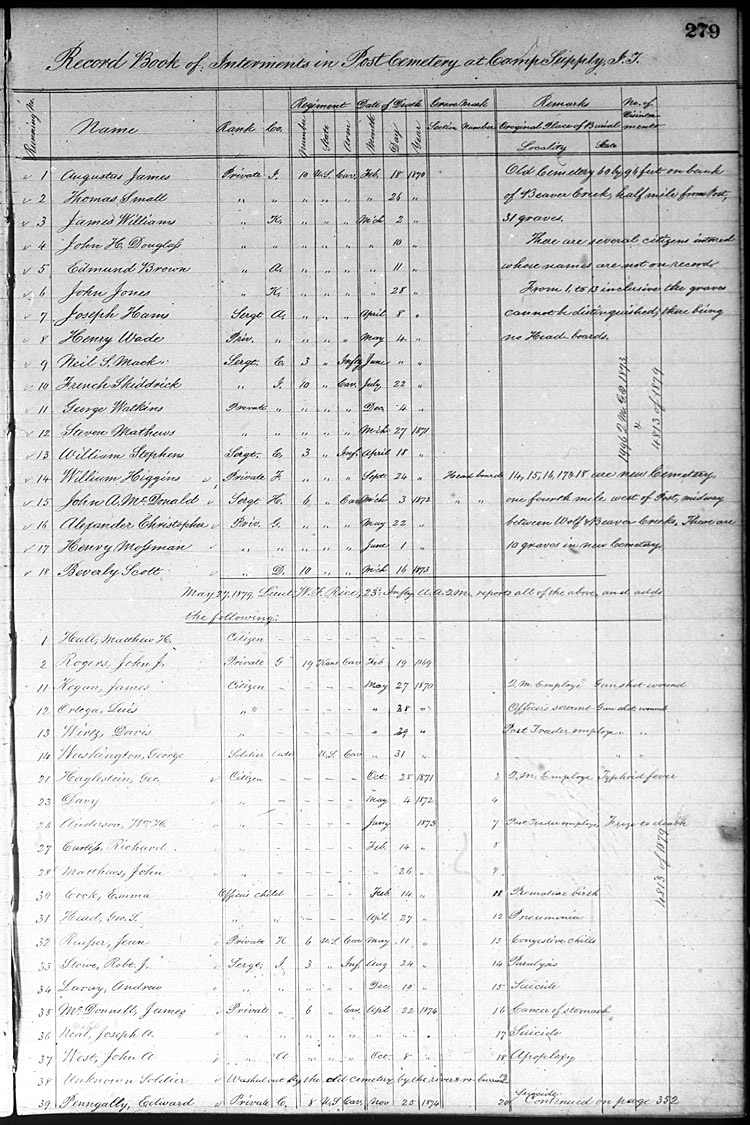 279
Record Book of Interments in Post Cemetery at Camp Supply, I.T.
Running No. Name Rank Co. Regiment Date of Death Grave Mark Remarks No. of Disinterments
Number State Arm Month Day Year Section Number Original Place of Burial
Locality State
1 Augustas James Private I. 10 U.S. Cav. Feb. 18 1870 Old Cemetery 60 by 96 feet on bank
2 Thomas Small " " " " " " 26 " of Beaver Creek, half mile from Post,
3 James Williams " K. " " " Mch 2 " 31 graves.
4 John H. Douglass " " " " " " 10 " There are several citizens interred
5 Edmund Brown " A. " " " " 11 " whose names are not on record.
6 John Jones " K. " " " " 28 " From 1, to 13 inclusive the graves
7 Joseph Hams Sergt A. " " " April 8 " cannot be distinguished, there being
8 Henry Wade Priv. " " " " May 4 " no Head boards.
9 Neil S. Mack Sergt. C. 3 " Infty June " "
10 French Skiddrick " I. 10 " Cav. July 22 "
11 George Watkins Private " " " " Dec. 4 "
12 Steven Mathews " " " " " Mch 27 1871
13 William Stephens Sergt. C. 3 " Inf. April 18 "
1496 2 M.G.O. 1873
&
4813 of 1879
14 William Higgins Private F. " " " Sept. 24 " Head boards 14, 15, 16, 17 & 18 are new Cemetery
15 John A. McDonald Sergt H. 6 " Cav Mch 3 1872 " " one fourth mile west of Post, midway
16 Alexander Christopher Priv. G. " " " May 22 " between Wolf & Beaver Creeks. There are
17 Henry Mossman " " " " " June 1 " 10 graves in new Cemetery
18 Beverly Scott " D. 10 " " Mch 16 1873
May 27, 1879. Lieut. W. F. Rice, 23d. Infty A.A.Q.M. reports all of the above, and adds
the following:
1 Hull, Matthew H. Citizen – – – – – –
2 Rogers, John J. Private G 19 Kans Cav Feb 19 1869
11 Kogan, James Citizen – – – May 27 1870 Q.M. Employe Gunshot wound
12 Ortega, Luis " " – – – " 28 " Officer's servant Gunshot wound
13 Wirtz, Davis " – – – " 29 " Post Trader employe " "
14 Washington, George Soldier U.S. Cav " 31 "
21 Haglestein, Geo. Citizen – – – – Oct. 25 1871 2 Q.M. Employe Typhoid fever
23 Davy " – – – – May 4 1872 4
26 Anderson, Wm H. " – – – – Jany 1873 7 Post Trader employe Froze to death
27 Curtiss, Richard " – – – – Feb. 14 " 8
28 Matthews, John " – – – – " 26 " 9
4813 of 1879
30 Cook, Emma Officer's child – – – Feb 14 " 11 Premature birth
31 Head, Geo. S. " " – – – April 27 " 12 Pneumonia
32 Jean Private K 6 U.S. Cav May 11 " 13 Congestive chills
33 Stowe, Robt. J. Sergt. I. 3 " Inf Aug 24 " 14 Paralysis
34 Andrew " " " " " Dec. 10 " 15 Suicide
35 McDonnell, James Private " 6 " Cav. April 22 1874 16 Cancer of stomach
36 Neal, Joseph A. " " " " " " " " 17 Suicide
37 West, John A " A " " " Oct. 8 " 18 Apoplexy
38 Unknown Soldier Washed out by the old cemetery by the river & re-buried 19
39 Penngally, Edward Private C. 8 U.S. Cav. Nov. 25 1874 20 Suicide
Continued on page 352